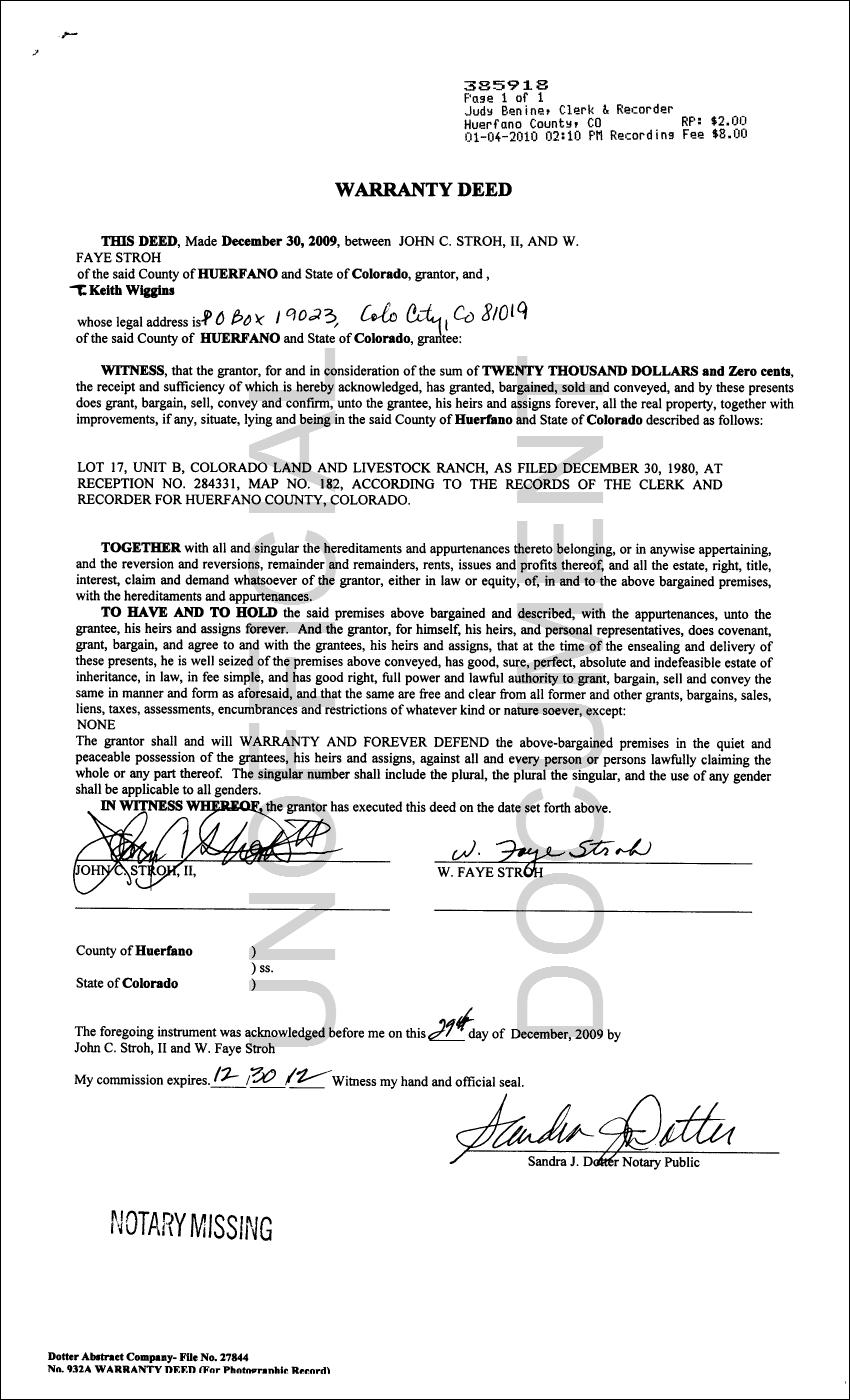 385918
Page 1 of 1
Judy Benine, Clerk & Recorder
Huerfano County, CO RP: $2.00
01-04-2010 02:10 PM Recording Fee $8.00
WARRANTY DEED
THIS DEED, Made December 30, 2009, between JOHN C. STROH, II, AND W.
FAYE STROH
of the said County of HUERFANO and State of Colorado, grantor, and ,
T. Keith Wiggins
whose legal address is PO Box 19023, Colo City, Co 81019
of the said County of HUERFANO and State of Colorado, grantee:
WITNESS, that the grantor, for and in consideration of the sum of TWENTY THOUSAND DOLLARS and Zero cents,
the receipt and sufficiency of which is hereby acknowledged, has granted, bargained, sold and conveyed, and by these presents
does grant, bargain, sell, convey and confirm, unto the grantee, his heirs and assigns forever, all the real property, together with
improvements, if any, situate, lying and being in the said County of Huerfano and State of Colorado described as follows:
LOT 17, UNIT B, COLORADO LAND AND LIVESTOCK RANCH, AS FILED DECEMBER 30, 1980, AT
RECEPTION NO. 284331, MAP NO. 182, ACCORDING TO THE RECORDS OF THE CLERK AND
RECORDER FOR HUERFANO COUNTY, COLORADO.
TOGETHER with all and singular the hereditaments and appurtenances thereto belonging, or in anywise appertaining,
and the reversion and reversions, remainder and remainders, rents, issues and profits thereof, and all the estate, right, title,
interest, claim and demand whatsoever of the grantor, either in law or equity, of, in and to the above bargained premises,
with the hereditaments and appurtenances.
TO HAVE AND TO HOLD the said premises above bargained and described, with the appurtenances, unto the
grantee, his heirs and assigns forever. And the grantor, for himself, his heirs, and personal representatives, does covenant,
grant, bargain, and agree to and with the grantees, his heirs and assigns, that at the time of the ensealing and delivery of
these presents, he is well seized of the premises above conveyed, has good, sure, perfect, absolute and indefeasible estate of
inheritance, in law, in fee simple, and has good right, full power and lawful authority to grant, bargain, sell and convey the
same in manner and form as aforesaid, and that the same are free and clear from all former and other grants, bargains, sales,
liens, taxes, assessments, encumbrances and restrictions of whatever kind or nature soever, except:
NONE
The grantor shall and will WARRANTY AND FOREVER DEFEND the above-bargained premises in the quiet and
peaceable possession of the grantees, his heirs and assigns, against all and every person or persons lawfully claiming the
whole or any part thereof. The singular number shall include the plural, the plural the singular, and the use of any gender
shall be applicable to all genders.
IN WITNESS WHEREOF, the grantor has executed this deed on the date set forth above.
John C. Stroh II W. Faye Stroh
JOHN C. STROH, II, W. FAYE STROH
County of Huerfano )
) ss.
State of Colorado )
The foregoing instrument was acknowledged before me on this 29th day of December, 2009 by
John C. Stroh, II and W. Faye Stroh
My commission expires. 12/30/12 Witness my hand and official seal.
Sandra J. Dotter
Sandra J. Dotter Notary Public
NOTARY MISSING
Dotter Abstract Company- File No. 27844
No. 932A WARRANTY DEED (For Photographic Record)
UNOFFICIAL
DOCUMENT